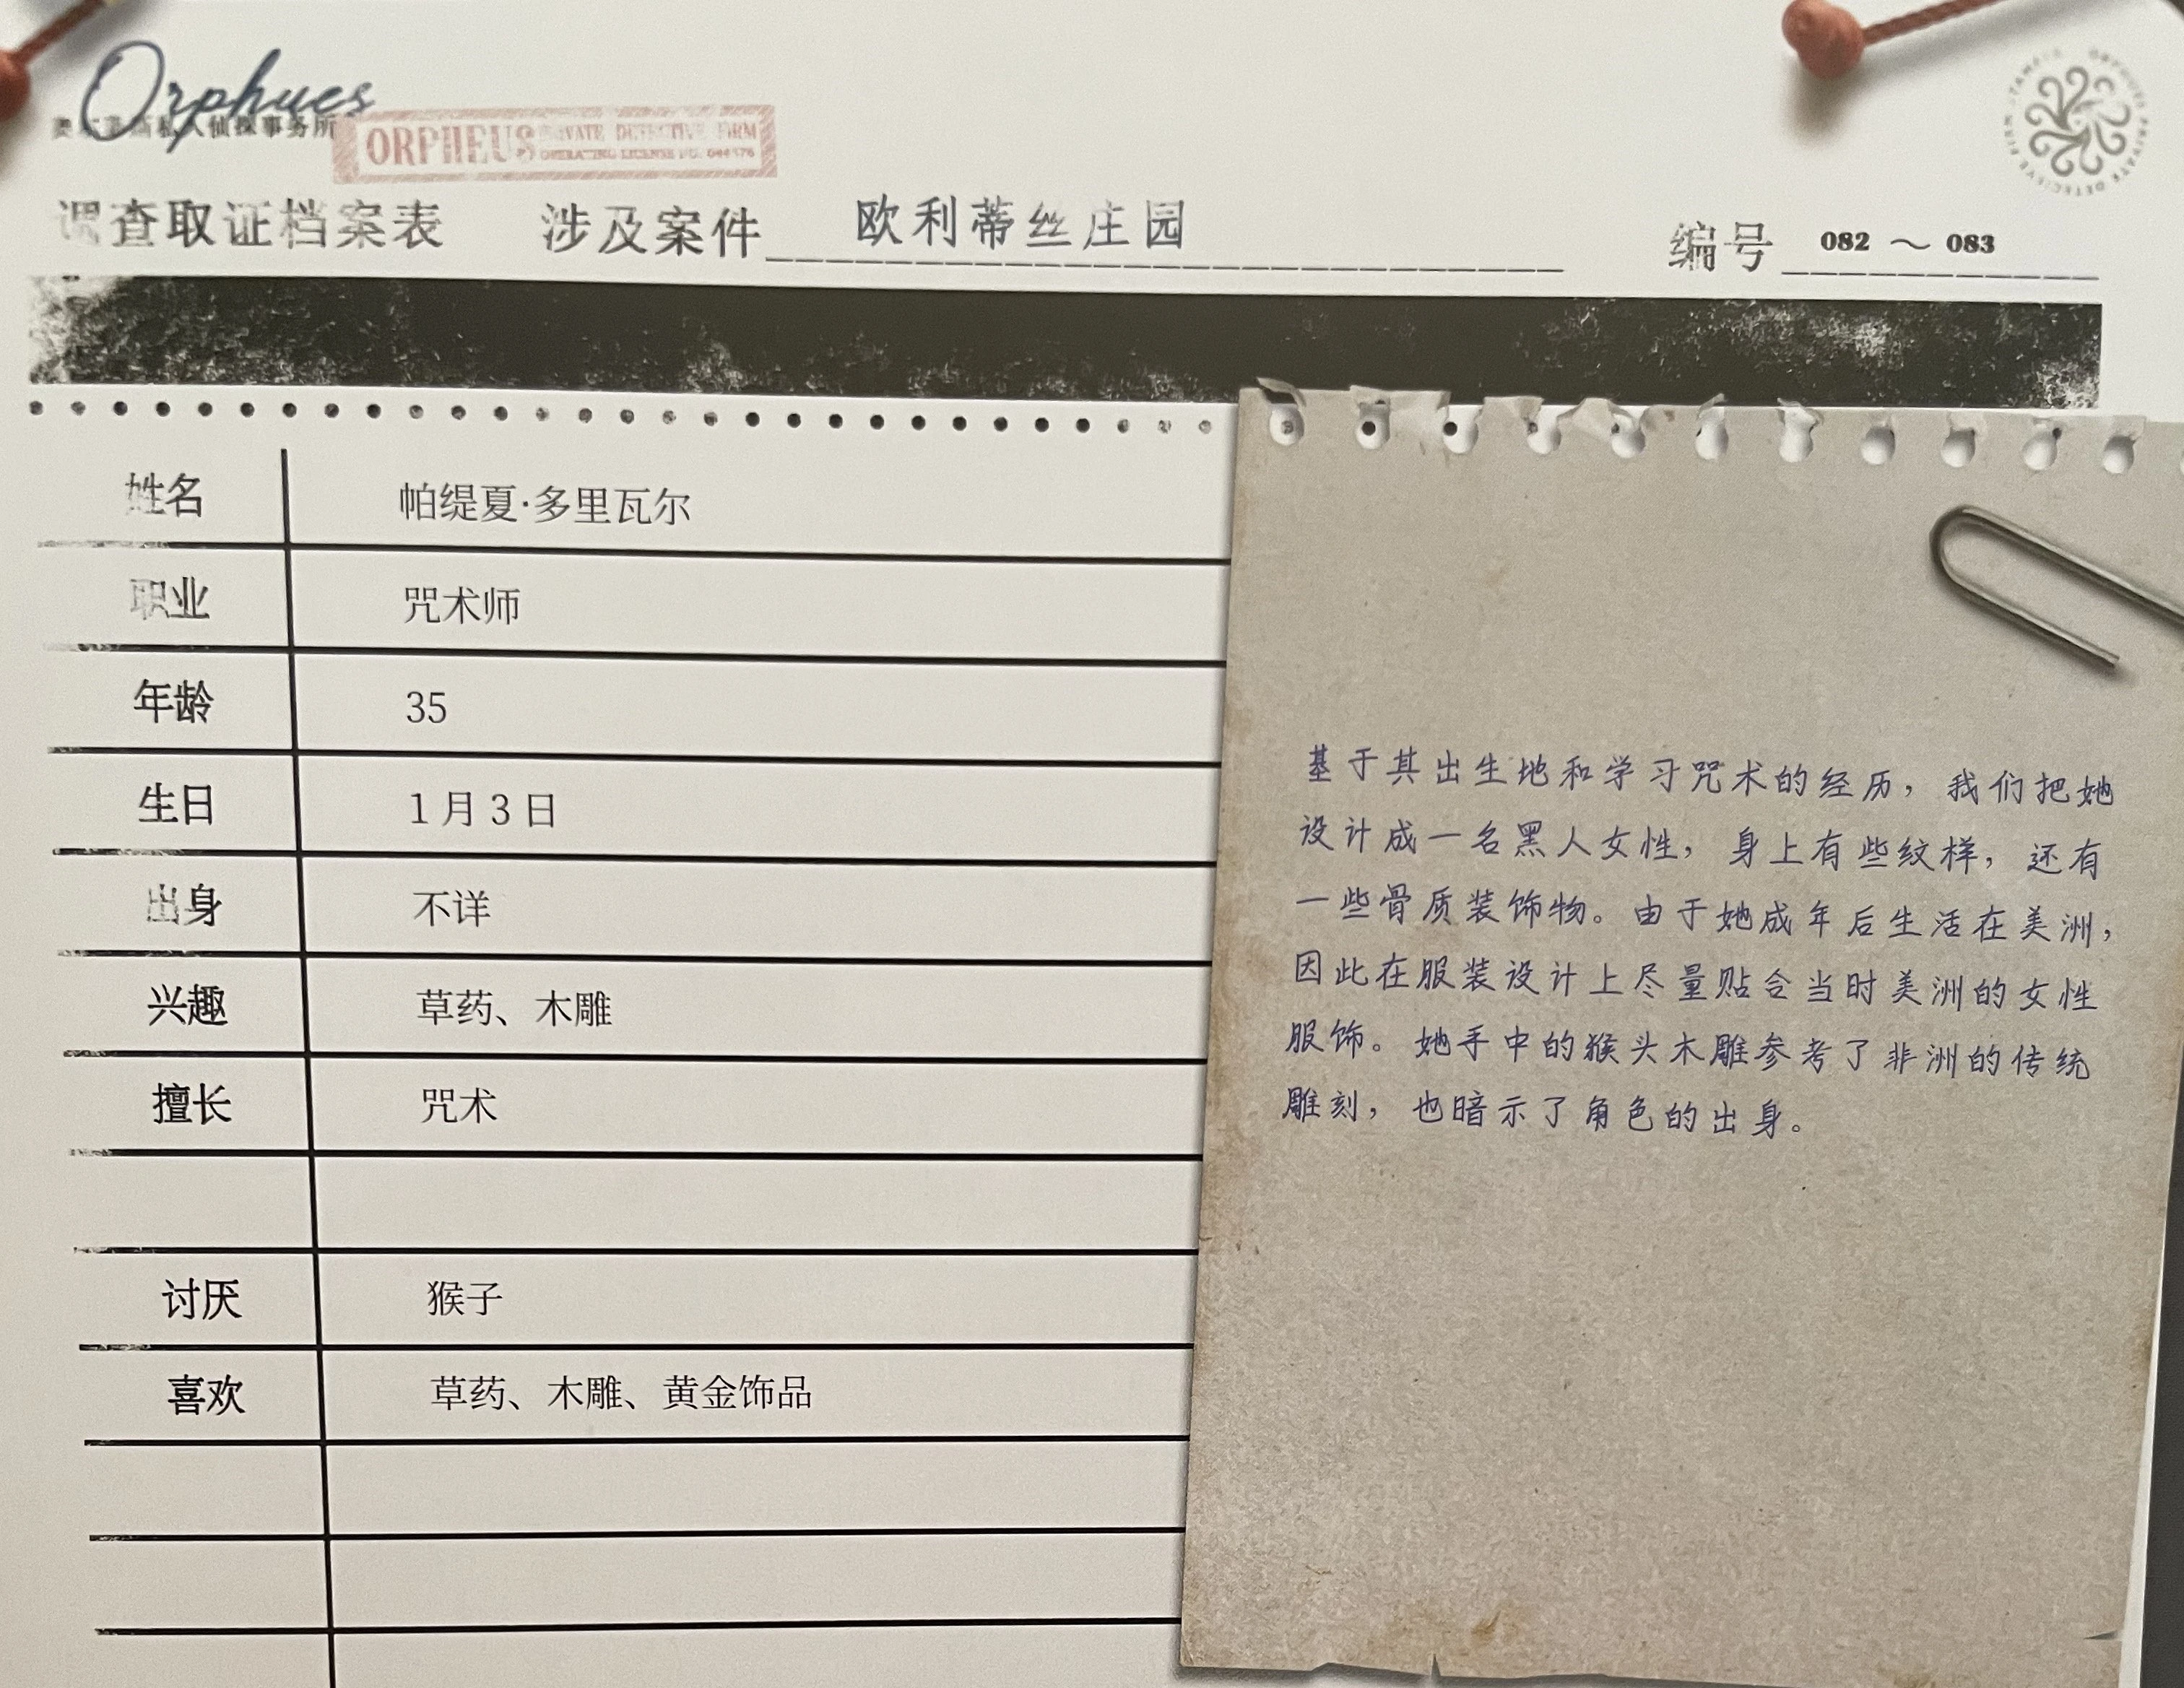 Orphues
私人侦探事务所
ORPHEUS PRIVATE DETECTIVE FIRM
OPERATING LICENSE NO.
调查取证档案表 涉及案件 欧利蒂丝庄园 编号 082 ~ 083
姓名 帕缇夏·多里瓦尔
职业 咒术师
年龄 35
生日 1月3日
出身 不详
兴趣 草药、木雕
擅长 咒术
讨厌 猴子
喜欢 草药、木雕、黄金饰品
基于其出生地和学习咒术的经历，我们把她
设计成一名黑人女性，身上有些纹样，还有
一些骨质装饰物。由于她成年后生活在美洲，
因此在服装设计上尽量贴合当时美洲的女性
服饰。她手中的猴头木雕参考了非洲的传统
雕刻，也暗示了角色的出身。